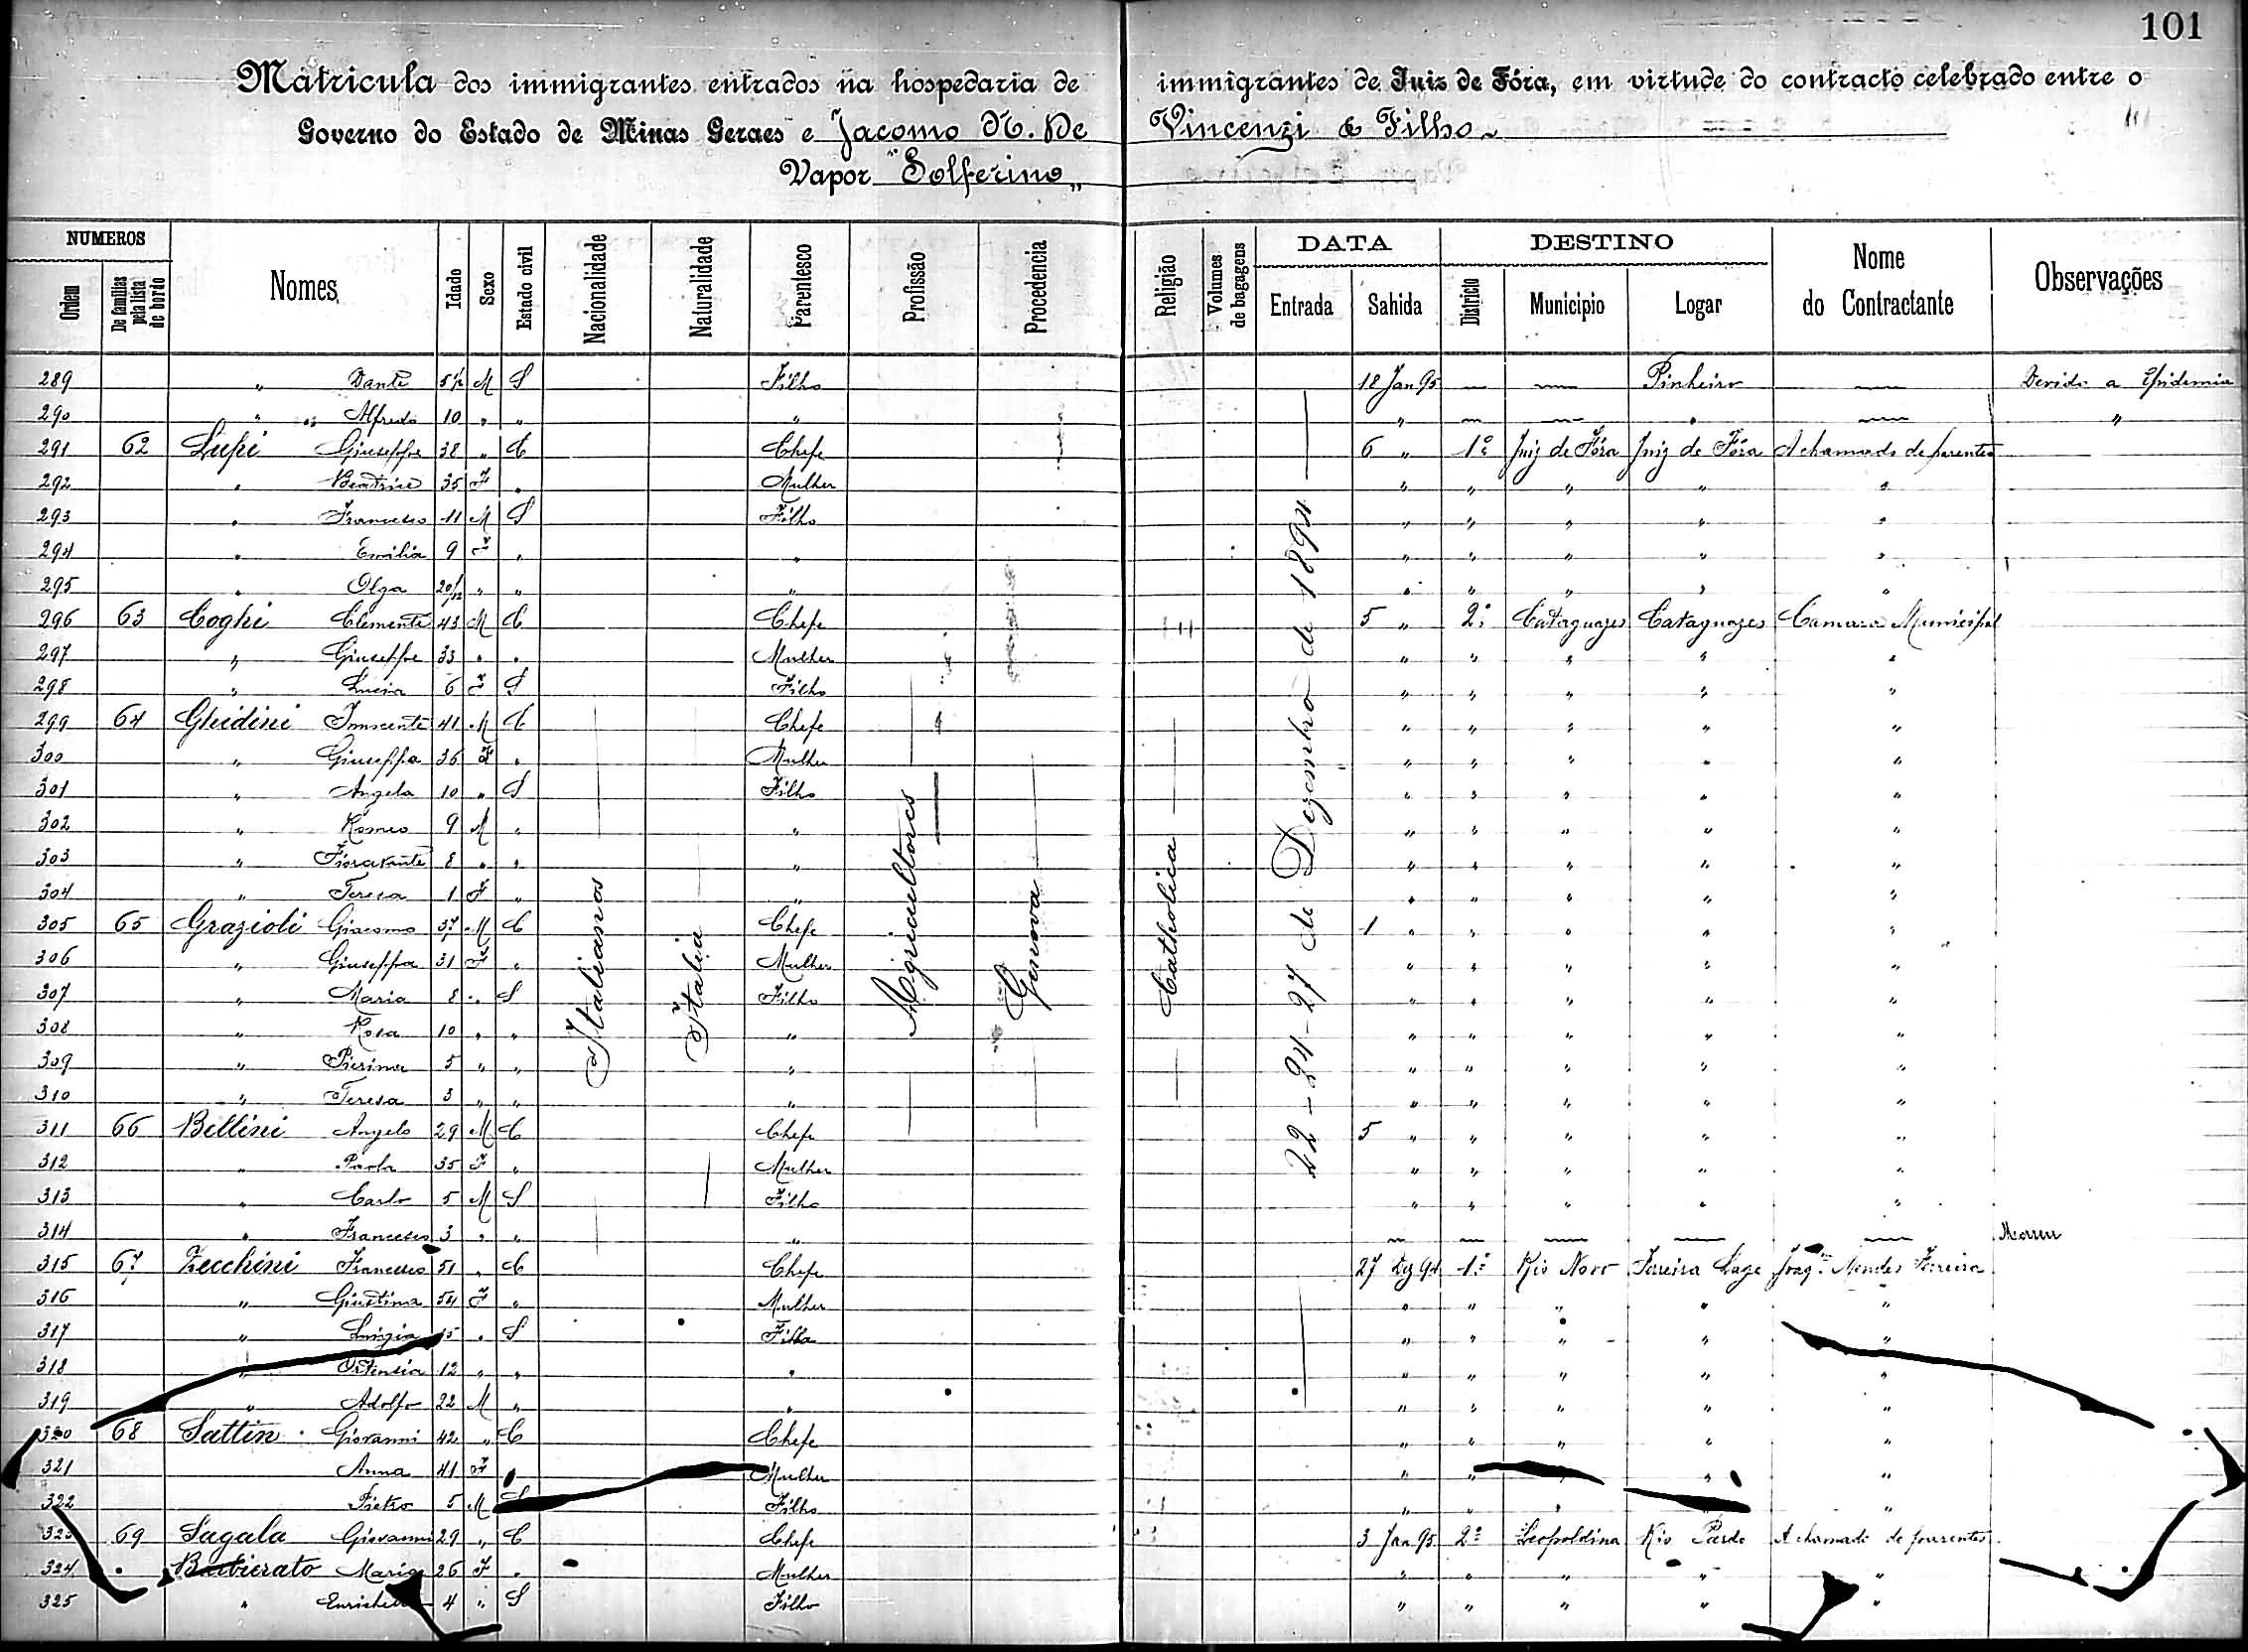 101
Matricula dos immigrantes entrados na hospedaria de immigrantes de Juiz de Fóra, em virtude do contracto celebrado entre o
Governo do Estado de Minas Geraes e Jacomo N. De Vincenzi & Filho
Vapor "Solferino"
NUMEROS DATA DESTINO
Ordem De familias pela lista de bordo Nomes Idade Sexo Estado civil Nacionalidade Naturalidade Parentesco Profissão Procedencia Religião Volumes de bagagens Entrada Sahida Districto Municipio Logar Nome do Contractante Observações
Italianos Italia Agricultores Genova Catholica 22-24-27 de Dezembro de 1894
289 " Dante 5½ M S Filho 18 Jan 95 — — Pinheiro — Devido a Epidemia
290 " " Alfredo 10 " " " " — — " — "
291 62 Lupi Giuseppe 38 " C Chefe 6 " 1º Juiz de Fóra Juiz de Fóra A chamado de parentes
292 " Beatrice 35 F " Mulher " " " " "
293 " Francesco 11 M S Filho " " " " "
294 " Emilia 9 F " " " " " " "
295 " Olga 20/12 " " " " " " " "
296 63 Coghi Clemente 43 M C Chefe 5 " 2º Cataguazes Cataguazes Camara Municipal
297 " Giuseppe 33 " " Mulher " " " " "
298 " Lucia 6 F S Filho " " " " "
299 64 Ghidini Innocente 41 M C Chefe " " " " "
300 " Giuseppa 36 F " Mulher " " " " "
301 " Angela 10 " S Filho " " " " "
302 " Romeo 9 M " " " " " " "
303 " Fioravante 8 " " " " " " " "
304 " Teresa 1 F " " " " " " "
305 65 Grazioli Giacomo 37 M C Chefe 1 " " " " "
306 " Giuseppa 31 F " Mulher " " " " "
307 " Maria 8 " S Filho " " " " "
308 " Rosa 10 " " " " " " " "
309 " Pierina 5 " " " " " " " "
310 " Teresa 3 " " " " " " " "
311 66 Bellini Angelo 29 M C Chefe 5 " " " " "
312 " Paola 35 F " Mulher " " " " "
313 " Carlo 5 M S Filho " " " " "
314 " Francesco 3 " " " — — — — — Morreu
315 67 Zecchini Francesco 51 " C Chefe 27 Dz 94 1º Rio Novo Ferreira Lage Joaqm Mendes Ferreira
316 " Giustina 54 F " Mulher " " " " "
317 " Luigia 15 " S Filha " " " " "
318 " Ortensia 12 " " " " " " " "
319 " Adolfo 22 M " " " " " " "
320 68 Sattin Giovanni 42 " C Chefe " " " " "
321 Anna 41 F " Mulher " " " " "
322 Pietro 5 M S Filho " " " " "
323 69 Sagala Giovanni 29 " C Chefe 3 Jan 95 2º Leopoldina Rio Pardo A chamado de parentes
324 " Barbierato Maria 26 F " Mulher " " " " "
325 " 4 " S Filho " " " " "